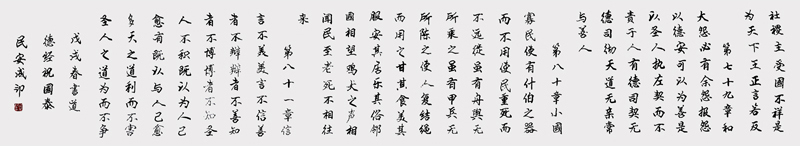 社稷主受國不祥是
为天下王正言若反
第七十九章和
大怨必有余怨报怨
以德安可以为善是
以圣人执左契而不
责于人有德司契无
德司彻天道无亲常
与善人
第八十章小國
寡民使有什伯之器
而不用使民重死而
不远徙虽有舟舆无
所乘之虽有甲兵无
所陈之使人复结绳
而用之甘其食美其
服安其居乐其俗邻
國相望鸡犬之声相
闻民至老死不相往
来
第八十一章信
言不美美言不信善
者不辩辩者不善知
者不博博者不知圣
人不积既以为人己
愈有既以与人己愈
多天之道利而不害
圣人之道为而不争
戊戌春書道
德经祝國泰
民安成印